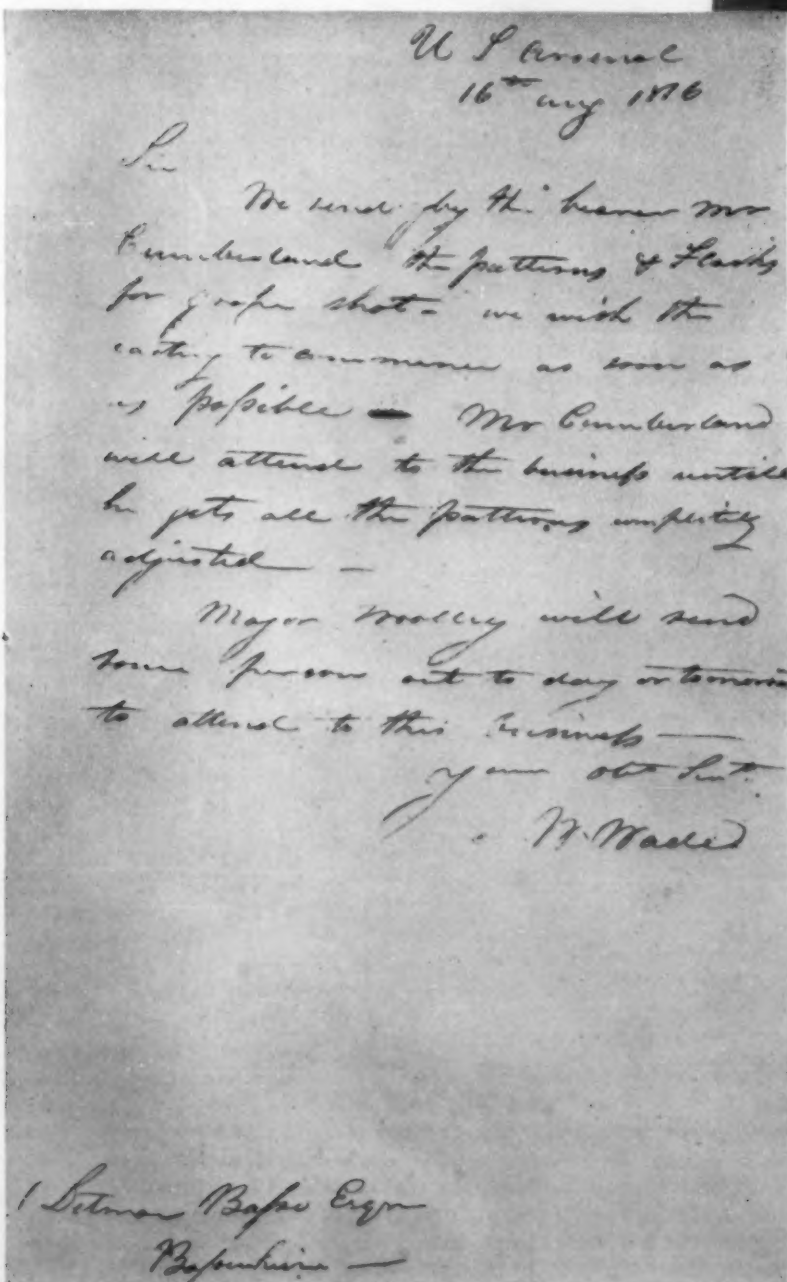 U S Arsenal
16th Aug 1816
Sir
We send by the bearer Mr
Cumberland the patterns & Flasks
for grape shot – we wish the
casting to commence as soon as
is possible — Mr Cumberland
will attend to the business untill
he gets all the patterns completely
adjusted —
Major Woolley will send
some persons out to day or tomorrow
to attend to this business —
your obt Servt
W. Wade
Detmar Basse Esqr
Bassenheim —